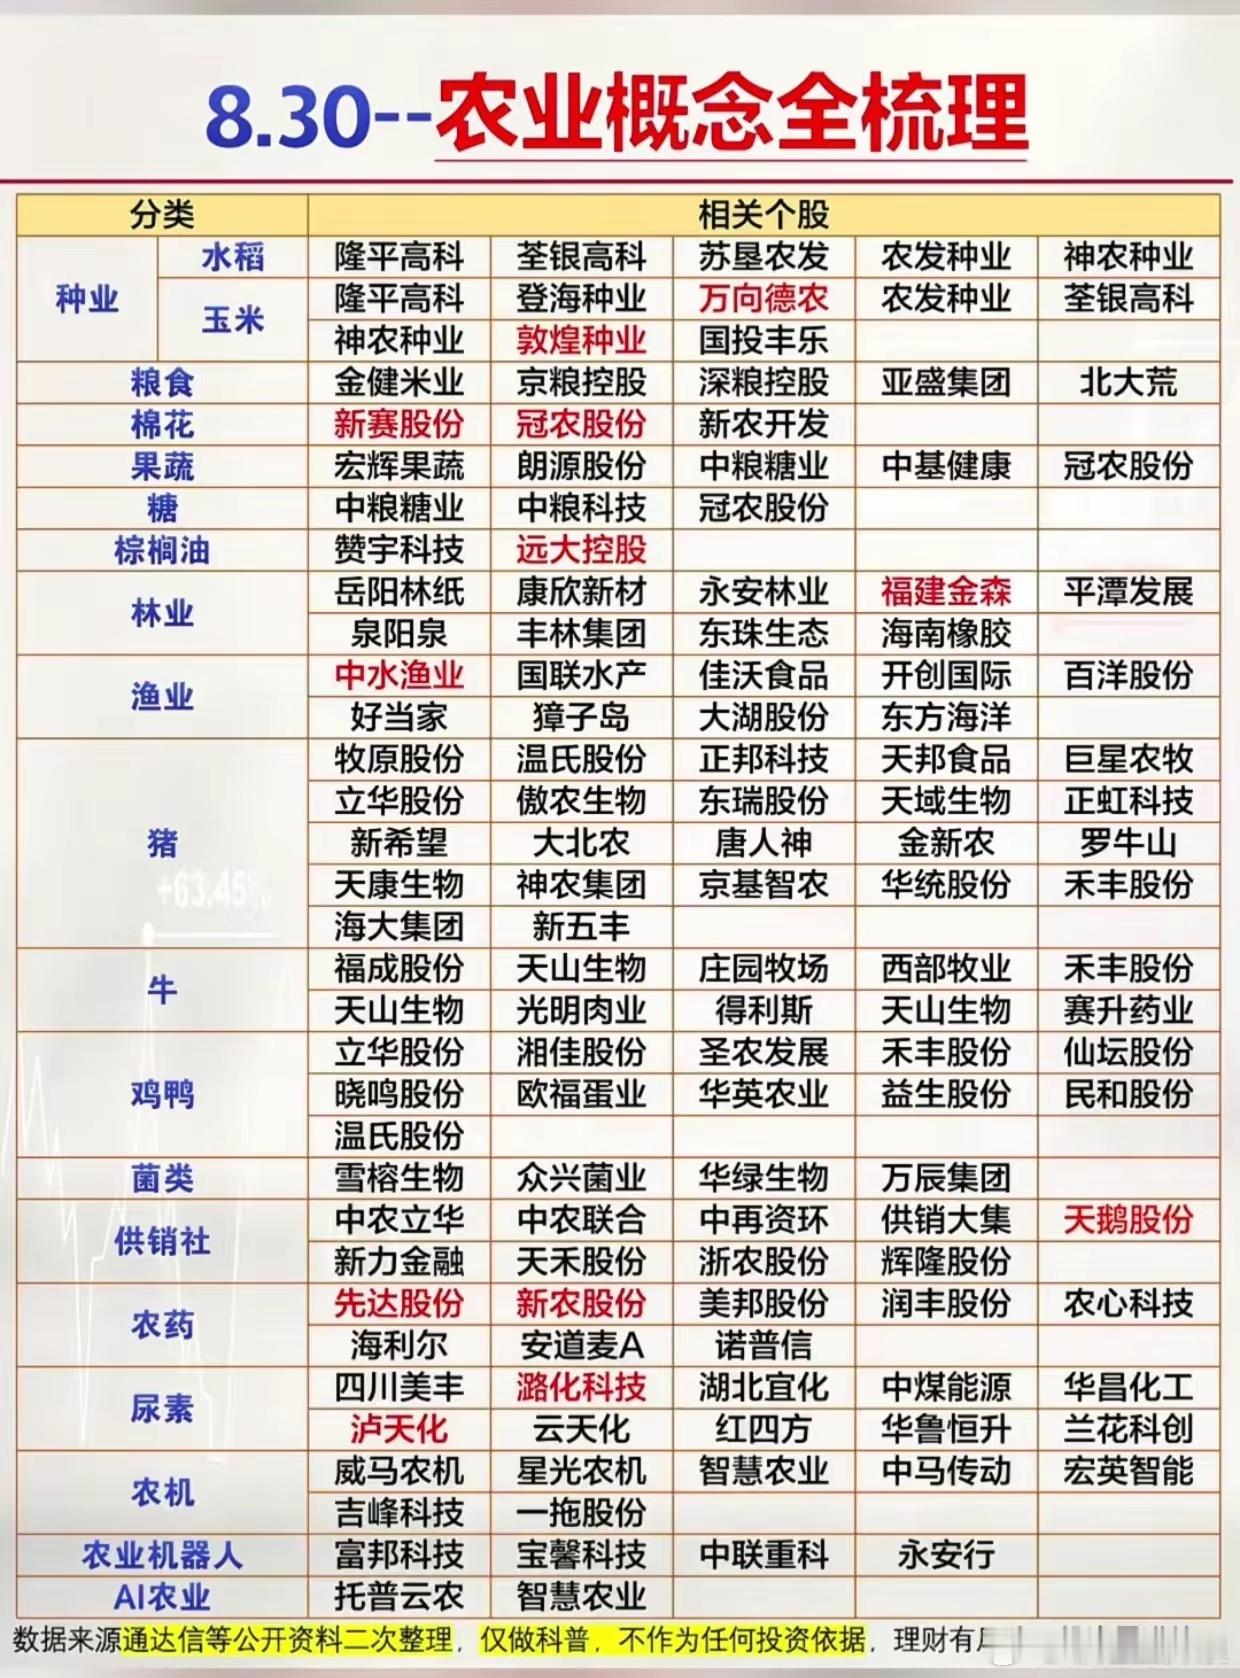 8.30--农业概念全梳理
分类 相关个股
种业 水稻 隆平高科 荃银高科 苏垦农发 农发种业 神农种业
玉米 隆平高科 登海种业 万向德农 农发种业 荃银高科
神农种业 敦煌种业 国投丰乐
粮食 金健米业 京粮控股 深粮控股 亚盛集团 北大荒
棉花 新赛股份 冠农股份 新农开发
果蔬 宏辉果蔬 朗源股份 中粮糖业 中基健康 冠农股份
糖 中粮糖业 中粮科技 冠农股份
棕榈油 赞宇科技 远大控股
林业 岳阳林纸 康欣新材 永安林业 福建金森 平潭发展
泉阳泉 丰林集团 东珠生态 海南橡胶
渔业 中水渔业 国联水产 佳沃食品 开创国际 百洋股份
好当家 獐子岛 大湖股份 东方海洋
猪 牧原股份 温氏股份 正邦科技 天邦食品 巨星农牧
立华股份 傲农生物 东瑞股份 天域生物 正虹科技
新希望 大北农 唐人神 金新农 罗牛山
天康生物 神农集团 京基智农 华统股份 禾丰股份
海大集团 新五丰
+63.45%
牛 福成股份 天山生物 庄园牧场 西部牧业 禾丰股份
天山生物 光明肉业 得利斯 天山生物 赛升药业
鸡鸭 立华股份 湘佳股份 圣农发展 禾丰股份 仙坛股份
晓鸣股份 欧福蛋业 华英农业 益生股份 民和股份
温氏股份
菌类 雪榕生物 众兴菌业 华绿生物 万辰集团
供销社 中农立华 中农联合 中再资环 供销大集 天鹅股份
新力金融 天禾股份 浙农股份 辉隆股份
农药 先达股份 新农股份 美邦股份 润丰股份 农心科技
海利尔 安道麦A 诺普信
尿素 四川美丰 潞化科技 湖北宜化 中煤能源 华昌化工
泸天化 云天化 红四方 华鲁恒升 兰花科创
农机 威马农机 星光农机 智慧农业 中马传动 宏英智能
吉峰科技 一拖股份
农业机器人 富邦科技 宝馨科技 中联重科 永安行
AI农业 托普云农 智慧农业
数据来源通达信等公开资料二次整理，仅做科普，不作为任何投资依据，理财有